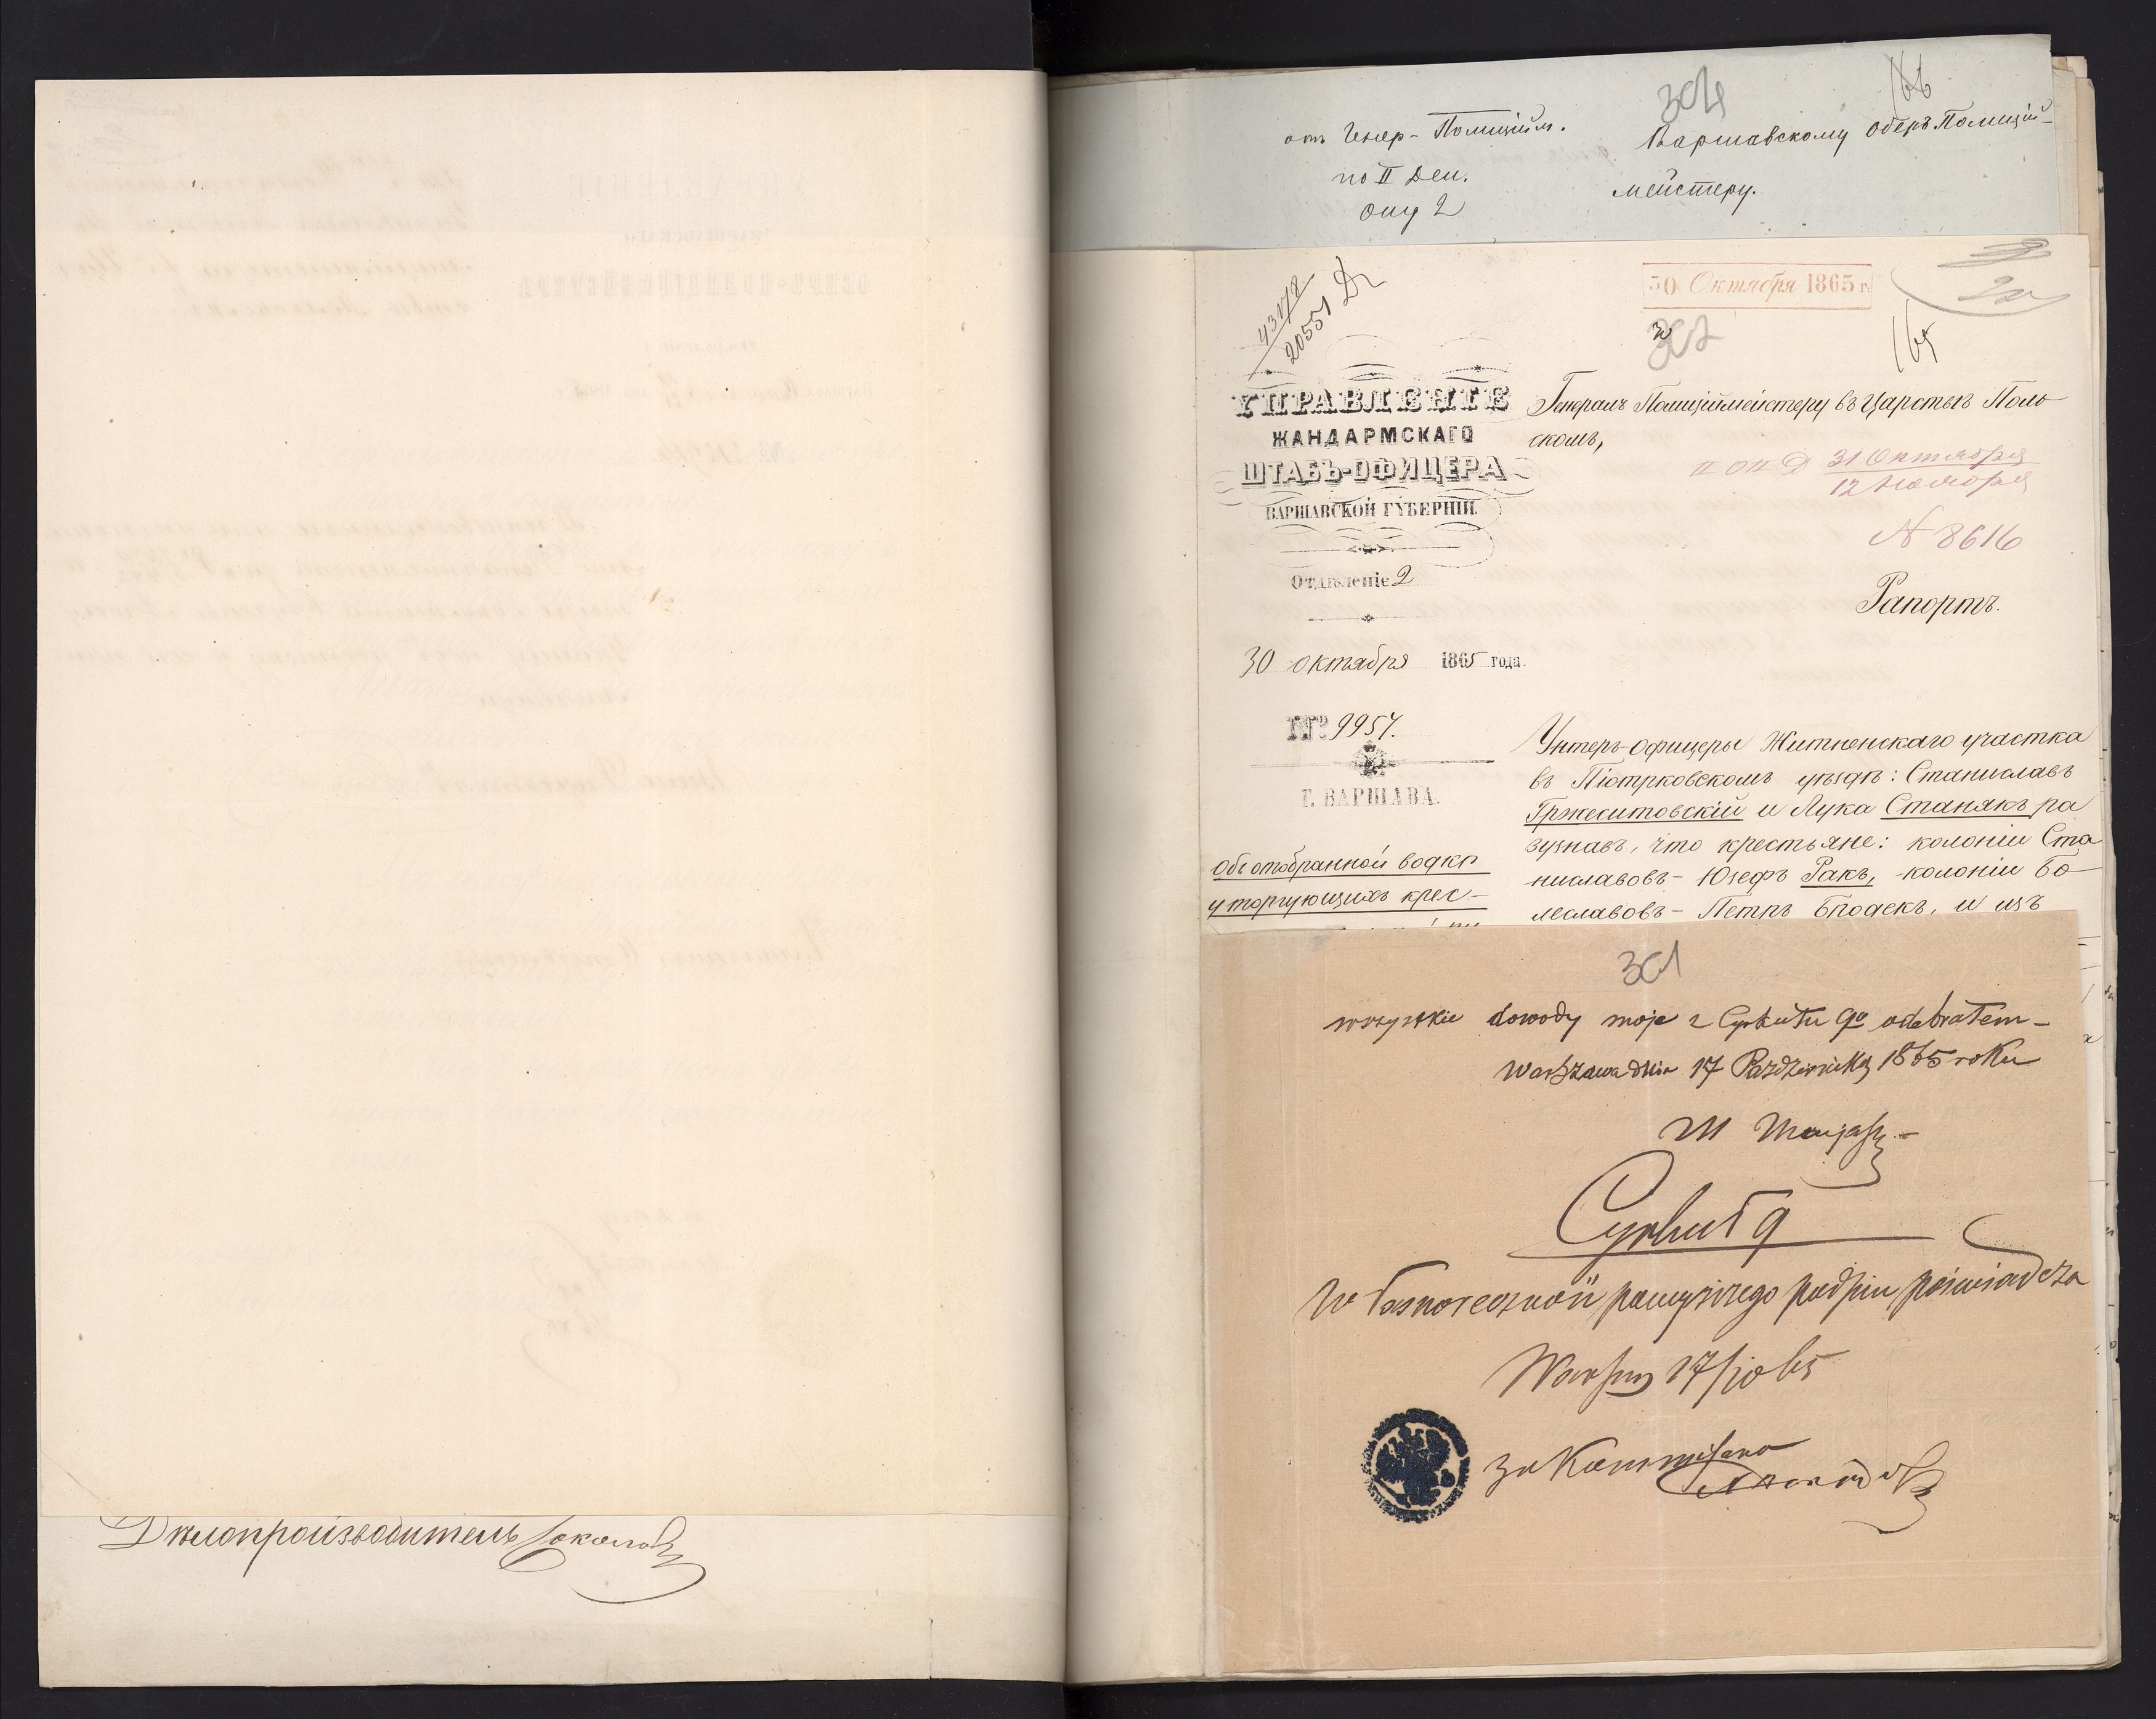 Дѣлопроизводитель Соколовъ
304
166
отъ Генер-Полицiйм.
по II Деп.
Варшавскому Оберъ Полицiй-
мейстеру.
43172
20551
30 Октября 1865 г.
302
165
УПРАВЛЕНIЕ
ЖАНДАРМСКАГО
ШТАБЪ-ОФИЦЕРА
ВАРШАВСКОЙ ГУБЕРНIИ.
Отдѣленiе 2
30 октября 1865 года.
№ 9957.
Г. ВАРШАВА.
Объ отобранной водкѣ
у торгующихъ крес-
Генералъ Полицiймейстеру въ Царствѣ Поль
скомъ,
31 Октября
12 Ноября
N 8616
Рапортъ.
Унтеръ-офицеры Житненскаго участка
въ Пiотрковскомъ уѣздѣ: Станиславъ
Гржеситовскiй и Лука Станякъ ра
зузнавъ, что крестьяне: колонiи Ста
ниславовъ - Юзефъ Ракъ, колонiи Бо-
леславовъ - Петръ Бродекъ, и изъ
301
wszystkie dowody moje z Cyrkułu 9º odebrałem -
Warszawa dnia 17 Pazdziernika 1865 roku
Cyrkuł 9
Własnoręczność powyższego podpisu poświadcza
Warszawa 17/10 65
za Kommissarza